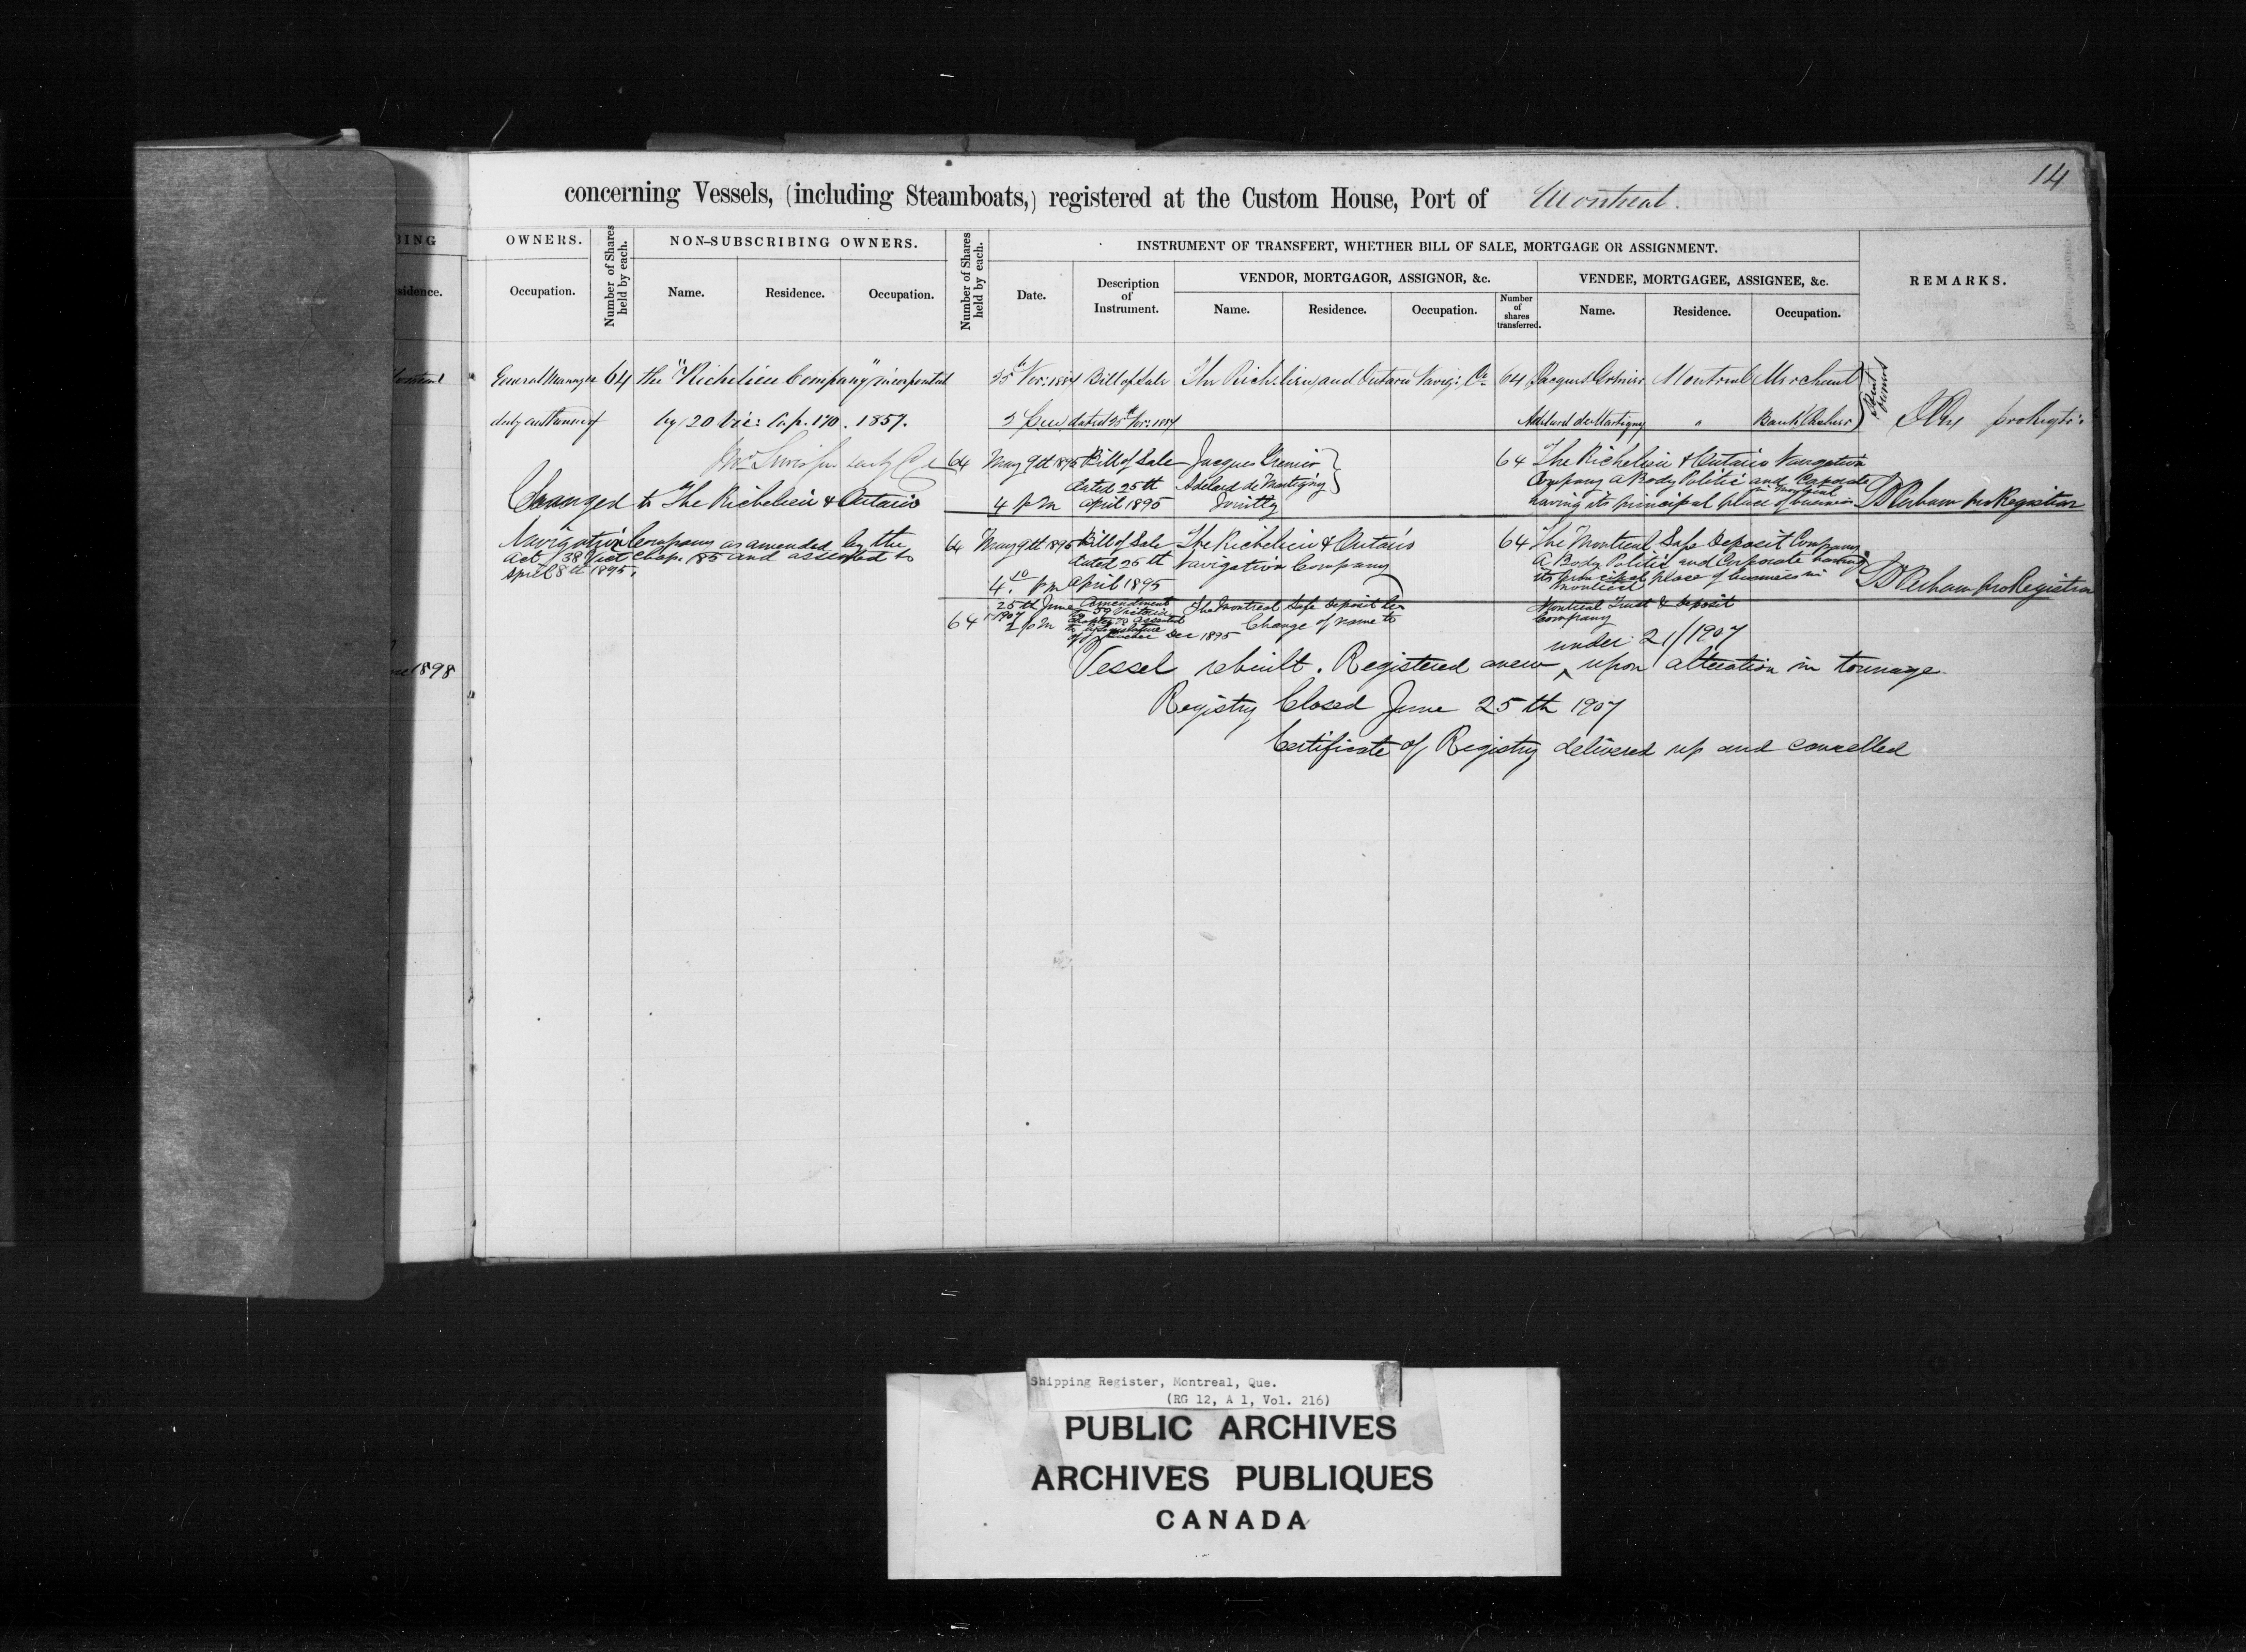 14
concerning Vessels, (including Steamboats,) registered at the Custom House, Port of Montreal.
OWNERS.
Number of Shares held by each.
NON-SUBSCRIBING OWNERS.
Number of Shares held by each.
INSTRUMENT OF TRANSFERT, WHETHER BILL OF SALE, MORTGAGE OR ASSIGNMENT.
REMARKS.
VENDOR, MORTGAGOR, ASSIGNOR, &c.
VENDEE, MORTGAGEE, ASSIGNEE, &c.
Occupation.
Name.
Residence.
Occupation.
Date.
Description of Instrument.
Name.
Residence.
Occupation.
Number of shares transferred.
Name.
Residence.
Occupation.
General Manager 64 the "Richelieu Company" incorporated
duly authorised by 20 Vic: Cap. 170. 1857.
Changed to The Richelieu & Ontario
Navigation Company as amended by the
Act 38 Vict Chap. 85 and assented to
April 8th 1895.
25th Nov: 1884 Bill of Sale The Richelieu and Ontario Navig: Co. 64 Jacques Grenier Montreal Merchant
dated 25th Nov: 1884 Adelard de Martigny " Bank Cashier
Joint Owners
64 May 9th 1895 Bill of Sale Jacques Grenier 64 The Richelieu & Ontario Navigation
dated 25th Adelard de Martigny Company a Body Politic and Corporate
4 pm April 1895 Jointly having its principal place of business in Montreal
pro Registrar
64 May 9th 1895 Bill of Sale The Richelieu & Ontario 64 The Montreal Safe Deposit Company
dated 25th Navigation Company A Body Politic and Corporate having
4.10 pm April 1895 its principal place of business in
Montreal
pro Registrar
25th June 1907 Amendment The Montreal Safe Deposit Co. Montreal Trust & Deposit
64 2 pm to 59 Victoria Chapter 73 assented to Legislature of Quebec Dec 1895 Change of name to Company
under 21/1907
Vessel rebuilt. Registered anew ^ upon alteration in tonnage
Registry Closed June 25th 1907
Certificate of Registry delivered up and cancelled
1898
Shipping Register, Montreal, Que.
(RG 12, A 1, Vol. 216)
PUBLIC ARCHIVES
ARCHIVES PUBLIQUES
CANADA